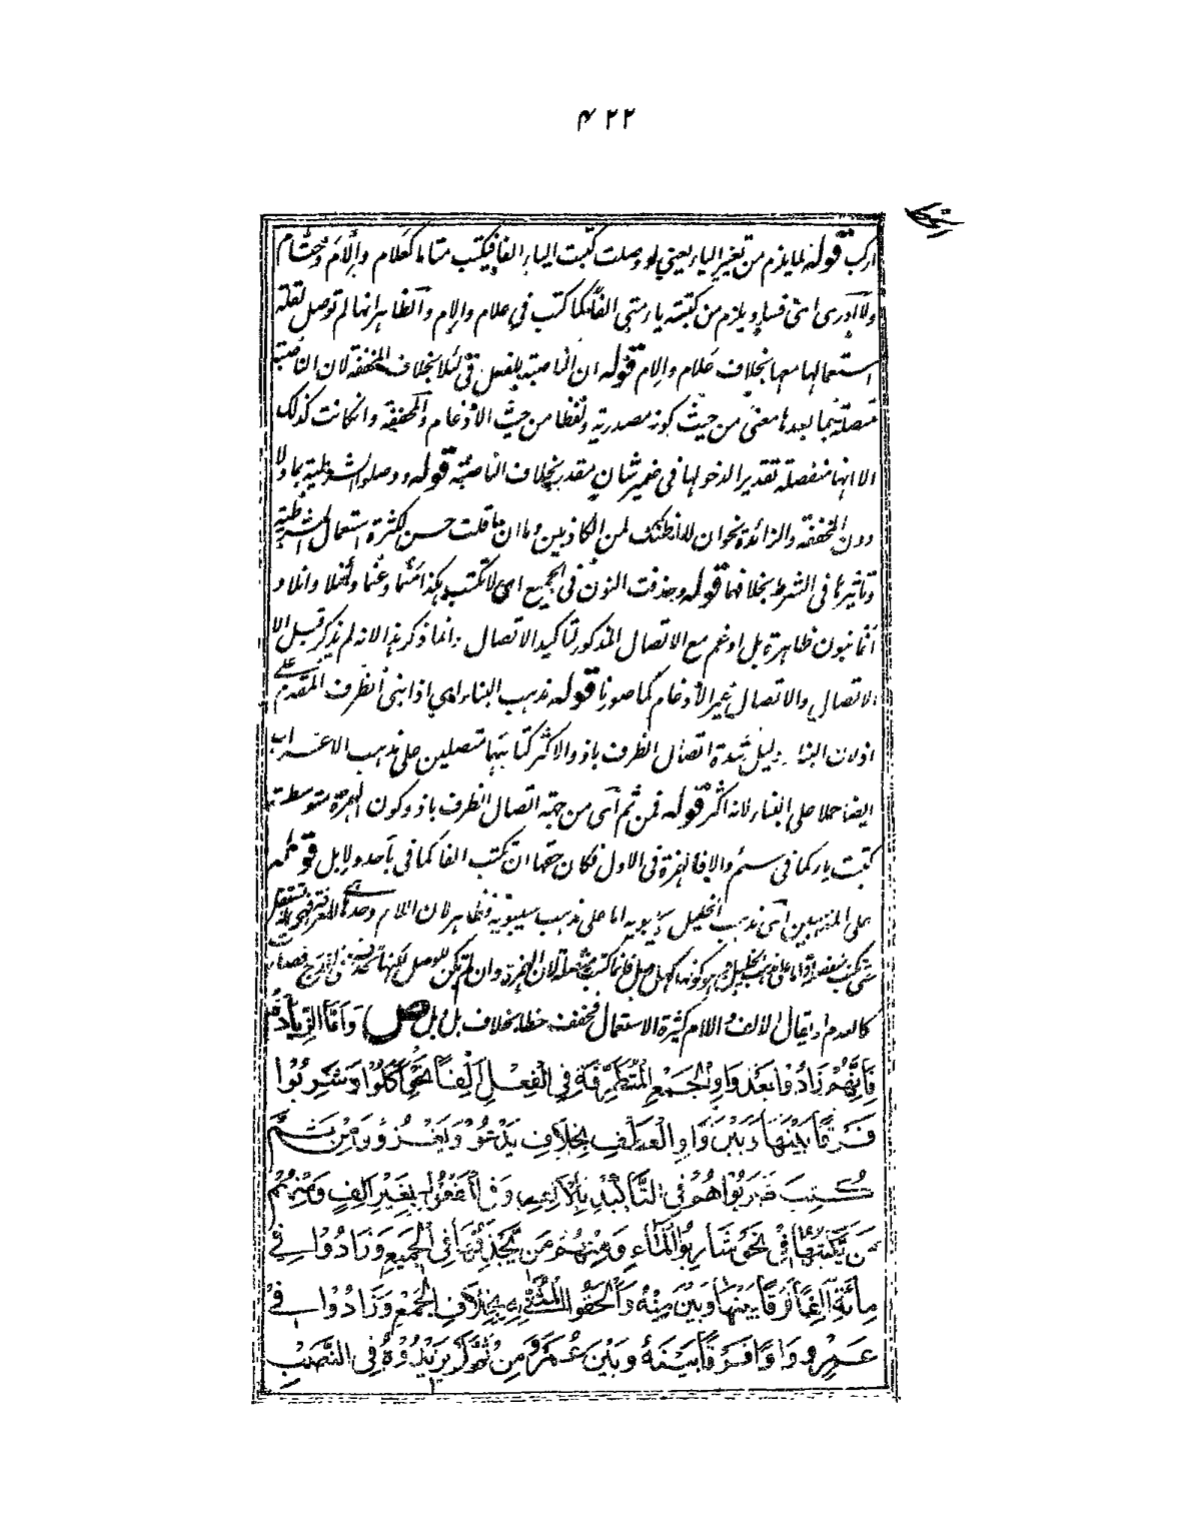 ٤٢٢
الخط
اركب قوله لما يلزم من تغير الياء يعني لو وصلت كتبت الياء الفا فيكتب متاما كعلام وإلام وحتام
ولا ادرى اى فساد يلزم من كتبة ياء متى الفا كما كتب في علام وإلام والظاهر انها لم توصل لقلة
استعمالها معها بخلاف علام وإلام قوله ان الناصبة للفعل في لئلا بخلاف المخففة لان الناصبة
متصلة بما بعدها معنى من حيث كونه مصدرية ولفظا من حيث الادغام والمخففة وانكانت كذلك
الا انها منفصلة تقديرا لدخولها في ضمير شان مقدر بخلاف الناصبة قوله ووصلوا الشرطية بما ولا
دون المخففة والزائدة نحو ان لاظنك لمن الكاذبين وما ان ما قلت حسن لكثرة استعمال الشرطية
وتأثيرها في الشرط بخلافهما قوله وحذفت النون في الجميع اى لا تكتب هكذا منما وعنما ولئنلا وانلا و
انما بنون ظاهرة بل ادغم مع الاتصال المذكور لتاكيد الاتصال وانما ذكر هذا لانه لم يذكر قبل الا
الاتصال والاتصال غير الادغام كما صورنا قوله مذهب البناء اى اذا بنى الظرف المقدم على
اذ لان البناء دليل شدة اتصال الظرف باذ والاكثر كتابتهما متصلين على مذهب الاعراب
ايضا حملا على البناء لانه اكثر قوله فمن ثم اى من جهة اتصال الظرف باذ وكون الهمزة متوسطة
كتبت ياء كما في سئم والا فالهمزة في الاول فكان حقها ان تكتب الفا كما في بأحد ولإبل قوله
على المذهبين اى مذهب الخليل وسيبويه اما على مذهب سيبويه فظاهر لان اللام وحدها هي المعرفة فهى لا تستقل
حتى تكتب منفصلة واما على مذهب الخليل وهو كونها كهل فانما كتبت متصلة لان الهمزة وان لم تكن للوصل لكنها تحذف في الدرج فصارت
كالعدم او يقال الالف واللام كثيرة الاستعمال فخفف خطا بخلاف هل وبل ص وَاَمَّا الزِّيَادَةُ
فَاِنَّهُمْ زَادُوْا بَعْدَ وَاوِ الْجَمْعِ الْمُتَطَرِّفَةِ فِي الْفِعْلِ اَلِفًا نَحْوُ اَكَلُوْا وَشَرِبُوْا
فَرْقًا بَيْنَهَا وَبَيْنَ وَاوِ الْعَطْفِ بِخِلَافِ يَدْعُوْ وَيَغْزُوْ وَمِنْ ثَمَّ
كُتِبَ ضَرَبُوْا هُمْ فِي التَّاكِيْدِ بِاَلِفٍ وَفِي الْمَفْعُوْلِ بِغَيْرِ اَلِفٍ وَمِنْهُمْ
مَنْ يَكْتُبُهَا فِيْ نَحْوِ شَارِبُوا الْمَاءِ وَمِنْهُمْ مَنْ يَحْذِفُهَا فِي الْجَمِيْعِ وَزَادُوْا فِيْ
مِائَةٍ اَلِفًا فَرْقًا بَيْنَهَا وَبَيْنَ مِنْهُ وَاَلْحَقُوا الْمُثَنّٰى بِهِ بِخِلَافِ الْجَمْعِ وَزَادُوْا فِيْ
عَمْرٍو وَاوًا فَرْقًا بَيْنَهُ وَبَيْنَ عُمَرَ وَمِنْ ثَمَّ لَمْ يَزِيْدُوْهُ فِي النَّصَبِ